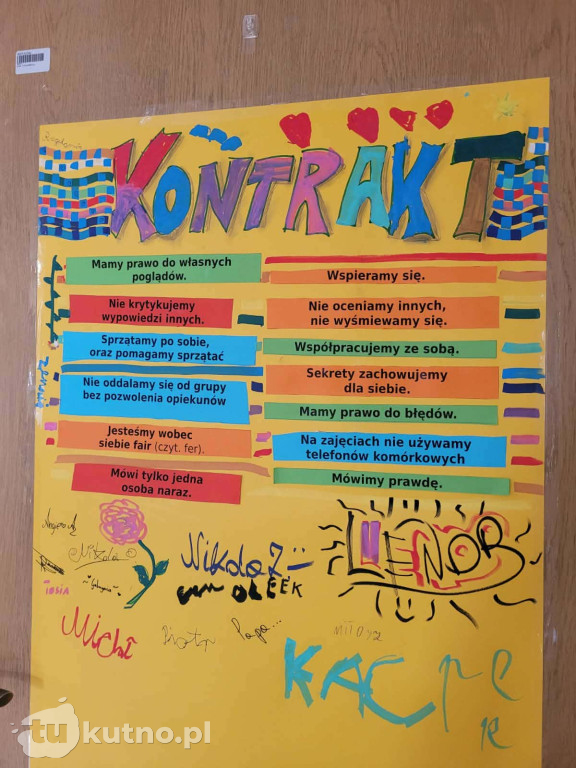 KONTRAKT
Mamy prawo do własnych
poglądów.
Nie krytykujemy
wypowiedzi innych.
Sprzątamy po sobie,
oraz pomagamy sprzątać
Nie oddalamy się od grupy
bez pozwolenia opiekunów
Jesteśmy wobec
siebie fair (czyt. fer).
Mówi tylko jedna
osoba naraz.
Wspieramy się.
Nie oceniamy innych,
nie wyśmiewamy się.
Współpracujemy ze sobą.
Sekrety zachowujemy
dla siebie.
Mamy prawo do błędów.
Na zajęciach nie używamy
telefonów komórkowych
Mówimy prawdę.
Nikola
OLEEK
LENOR
Michi
Piotr
KACPER
tukutno.pl